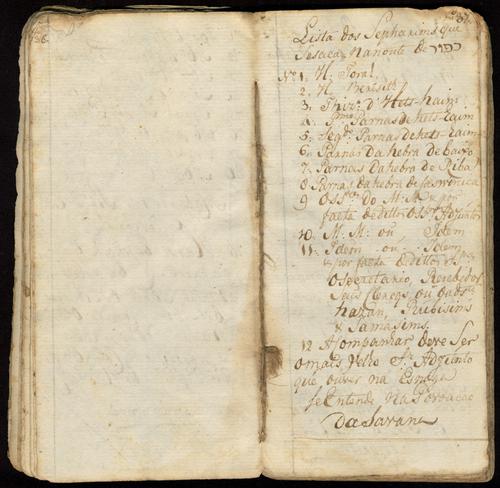 Lista dos Sepharims que
Sesaca, Nanoute de כפור
Nº 1. H. Toral
2. H. Beresit
3. Thizº. d'Hets-haim
4. Pmº. Parnas de hets-haim
5. Segdº. Parnas de hets-haim
6. Parnas da hebra de baixo
7. Parnas da hebra de Riba
8 Parnas da hebra de
9 do M: M: & por
faeta de dittos Adjunto
10. M. M: ou Idem
11. Idem ou Idem
& por faeta de dittos
o secretario, Recebedor
seus ou outro
hazan, Rubisims
& Samasims.
12 A Companhar deve Ser
o mais Velho Sr. Adjunto
que ouver na Esnoga
se Entende Na Povoação
Da Savane